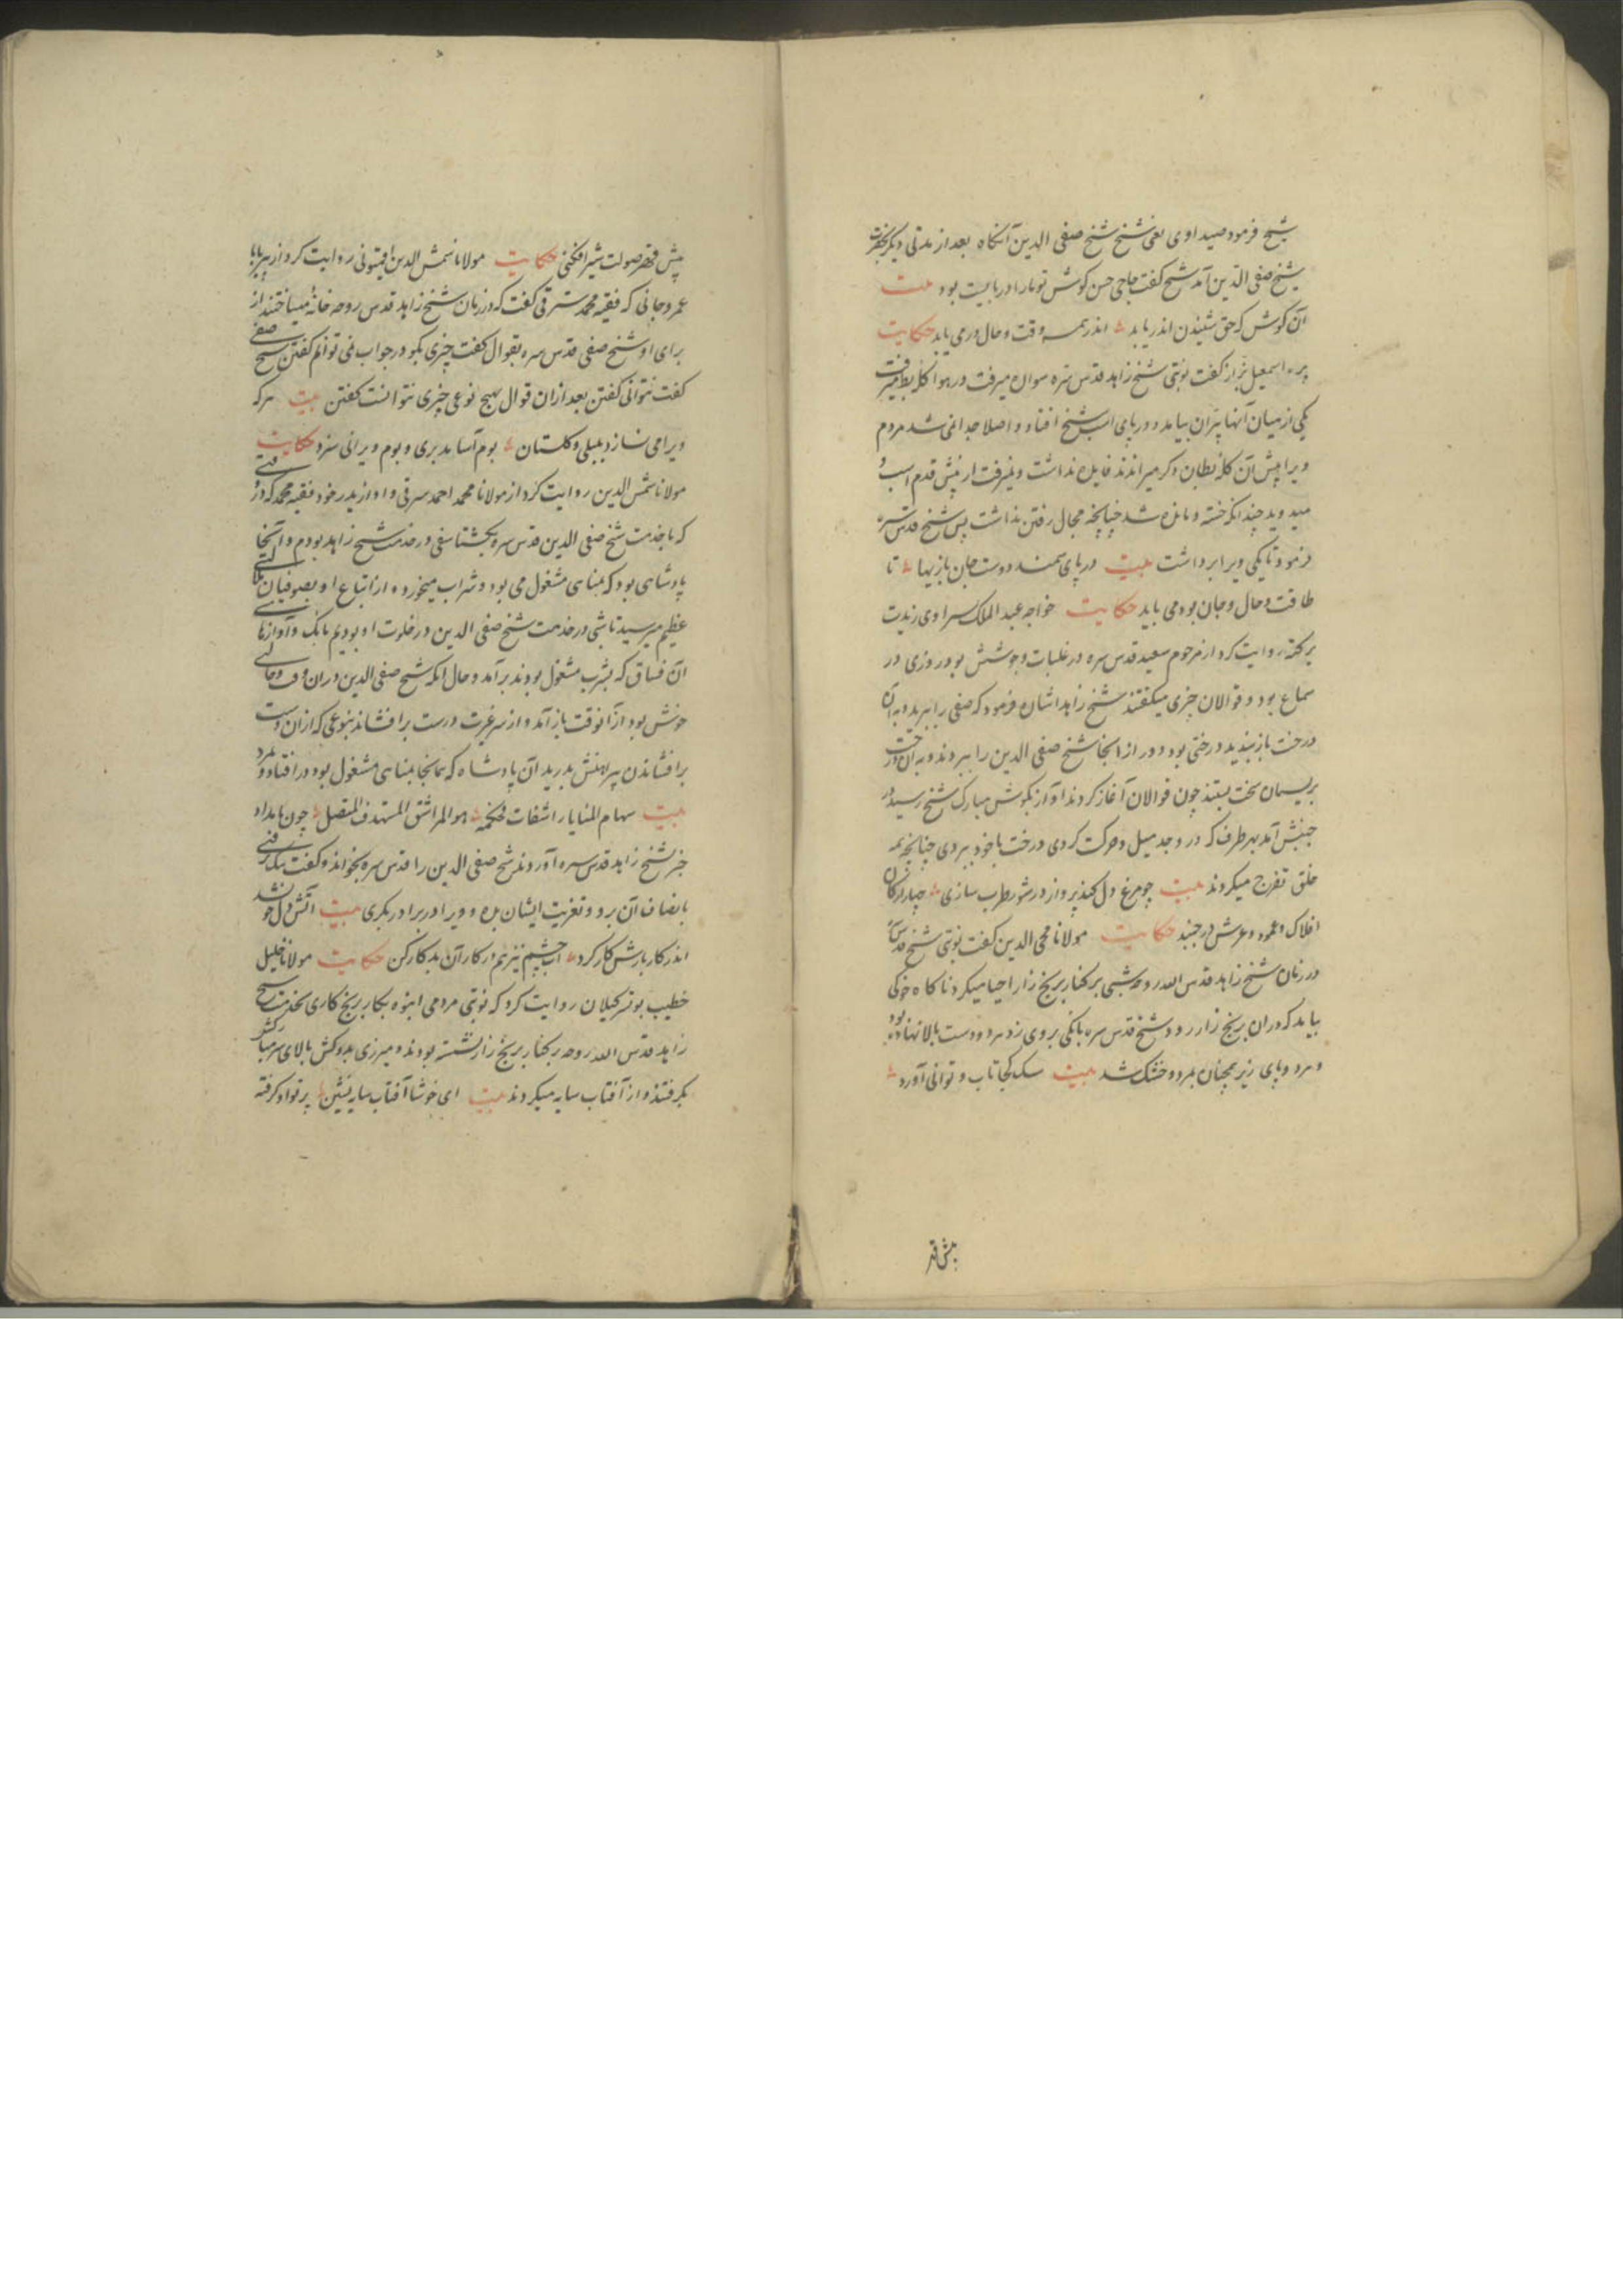 شیخ فرمود صید اوی یعنی شیخ شیخ صفی الدین آنکاه بعد از مدتی دیکر بحضرت
شیخ صفی الدین آمد شیخ کفت حاجی حسن کوش تو ما را دربایست بود بیت
آن کوش که حق شنیدن اندر یابد اندر همه وقت و حال در می یابد حکایت
پیره اسمعیل بزاز کفت نوبتی شیخ زاهد قدس سره سواره میرفت در هوا کله بط میرفت
یکی از میان آنها پران بیامد و در پای اسب شیخ افتاد و اصلا جدا نمی شد مردم
ویرا پیش آن کله بطان دکر میراندند فایده نداشت و نمیرفت از پیش قدم اسب و
میدوید چندانکه خسته و مانده شد چنانچه مجال رفتن نداشت پس شیخ قدس سره
فرمود تا یکی ویرا برداشت بیت در پای سمند دوست جان بازیها تا
طاقت و حال و جان بود می باید حکایت خواجه عبد الملک سراوی زیدت
برکته روایت کرد از مرحوم سعید قدس سره در غلبات و جوشش بود روزی در
سماع بود و قوالان چیزی میکفتند شیخ زاهد اشان فرمود که صفی را ببرید و به آن
درخت باز بندید درختی بود دور از انجا شیخ صفی الدین را ببردند و به آن درخت
بریسمان سخت ببستند چون قوالان آغاز کردند و آواز بکوش مبارک شیخ رسید در
جنبش آمد بهر طرف که در وجد میل و حرکت کردی درخت با خود ببردی چنانچه همه
خلق تفرج میکردند بیت چو مرغ دل کند پرواز در شور طرب سازی چهار ارکان
افلاک و عمود و عرش در جنبد حکایت مولانا محی الدین کفت نوبتی شیخ قدس سره
در زمان شیخ زاهد قدس الله روحه شبی بر کنار برنج زار احیا میکرد ناکاه خوکی
بیامد که در ان برنج زار رود شیخ قدس سره بانکی بر وی زد هر دو دست بالا نهاده بود
و هر دو پای زیر همچنان بمرد و خشک شد بیت سک کجا تاب و توانی آورد
پیش قهر
پیش قهر صولت شیرافکنی حکایت مولانا شمس الدین اقمیونی روایت کرد از پیر بابا
عمر وجانی که فقیه محمد سرقی کفت که در زمان شیخ زاهد قدس روحه خانهٔ میساختند از
برای او شیخ صفی قدس سره بقوال کفت چیزی بکو در جواب نمی توانم کفتن شیخ صفی
کفت نتوانی کفتن بعد از ان قوال بهیچ نوعی چیزی نتوانست کفتن بیت هر که
ویرا می نسازد بلبلی و کلستان بوم آسا مدبری و بوم ویرانی سزد حکایت
مولانا شمس الدین روایت کرد از مولانا محمد احمد سرقی و او از پدر خود فقیه محمد که در وقتی
که با خدمت شیخ صفی الدین قدس سره بکشتاسفی در خدمت شیخ زاهد بودم و آنجا
پادشاهی بود که بمناهی مشغول می بود و شراب میخورد و از اتباع او بصوفیان
عظیم میرسید تا شبی در خدمت شیخ صفی الدین در خلوت او بودیم بانک و آواز
آن فساق که بشرب مشغول بودند برآمد و حال آنکه شیخ صفی الدین در ان وقت و حالتی
خوش بود از آنوقت باز آمد و از سر غیرت دست برافشاند بنوعی که از ان دست
برافشاندن پیراهنش بدرید آن پادشاه که همانجا بمناهی مشغول بود در افتاد و بمرد
بیت سهام المنایا راشقات هو المراشق المستهدف المتصل چون بامداد
خبر شیخ زاهد قدس سره آوردند شیخ صفی الدین را قدس سره بخواند و کفت
بانصاف آن برو و تعزیت ایشان بده و ویرا در برادر بکری بیت آتش دل
اندر کار بارش کار کرد آب چشم نیز هم در کار آن بدکار کن حکایت مولانا خلیل
خطیب بوتسر کیلان روایت کرد که نوبتی مردمی انبوه بکار برنج کاری بخدمت شیخ
زاهد قدس الله روحه بر کنار برنج زار نشسته بودند و میزری بدوکش بالای سر مبارکش
بکرفتند و از آفتاب سایه میکردند بیت ای خوشا آفتاب سایه نشین پرتو او کرفته